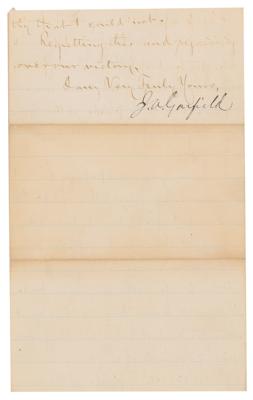 by that I could not.
Regretting this and rejoicing
over our victory.
I am Very Truly Yours,
J. A. Garfield